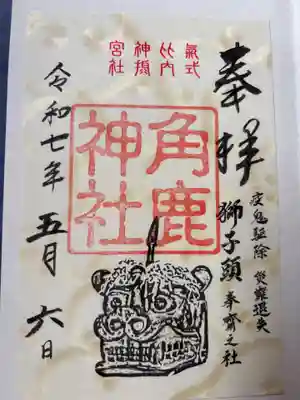 奉拝
疫鬼駆除 災難退失
獅子頭 奉齋之社
氣比神宮
式内摂社
角鹿神社
令和七年五月六日